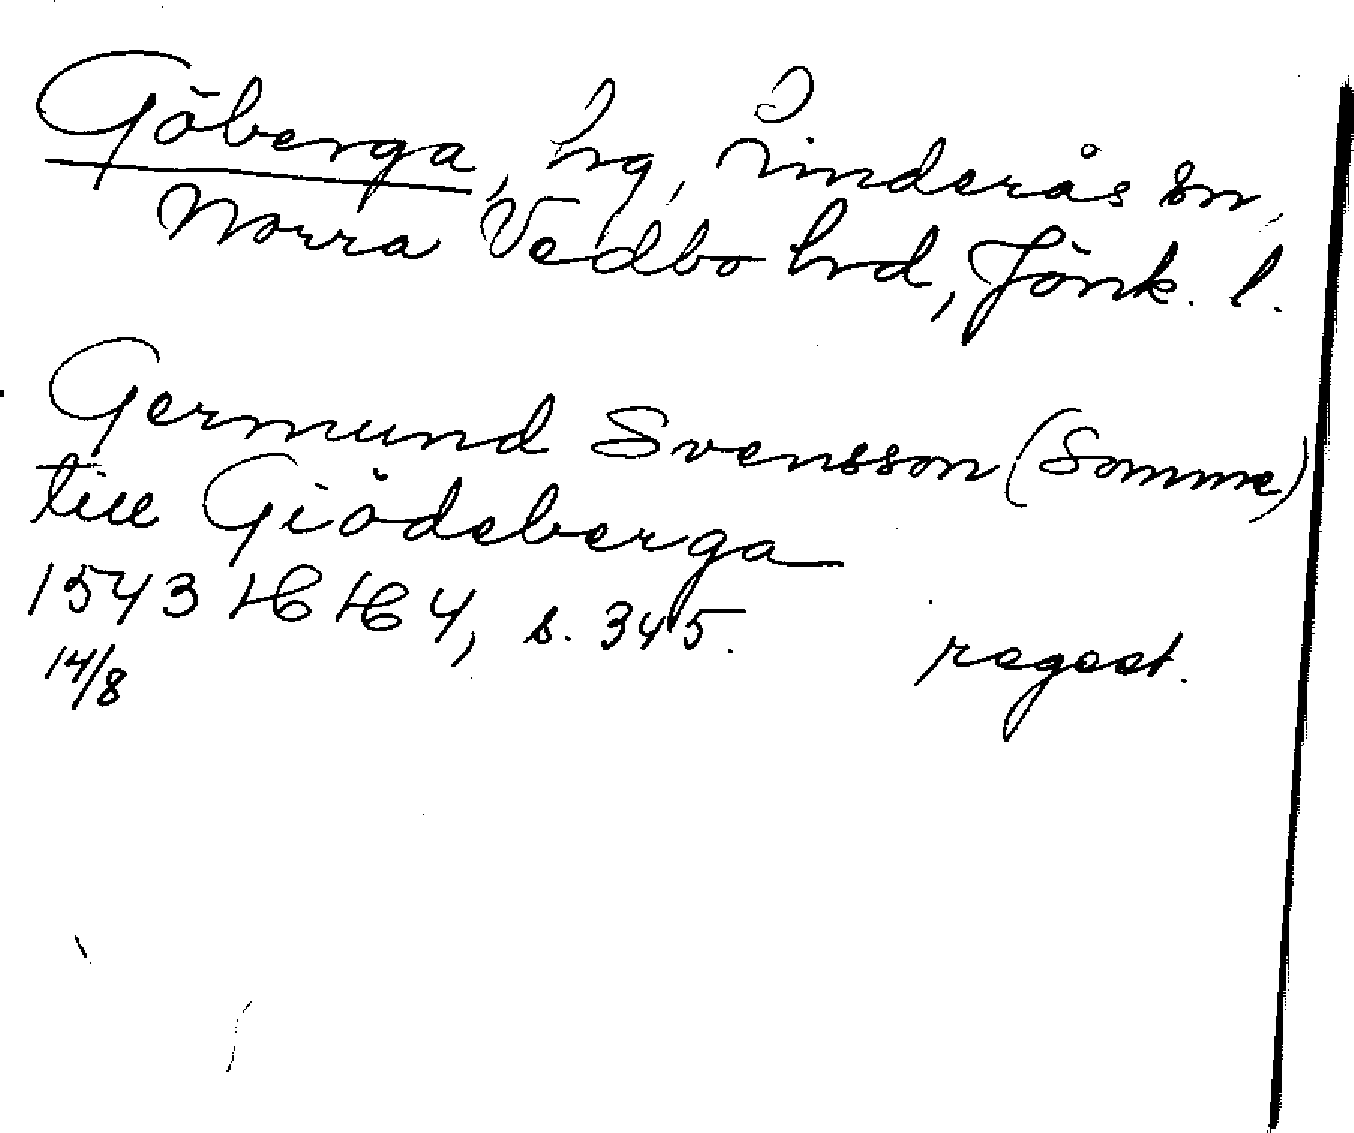 Göberga, hg, Linderås sn,
Norra Vedbo hrd, Jönk. l.
Germund Svensson (Somme)
till Giödeberga
1543 HH 4, s. 345.
14/8 regest.